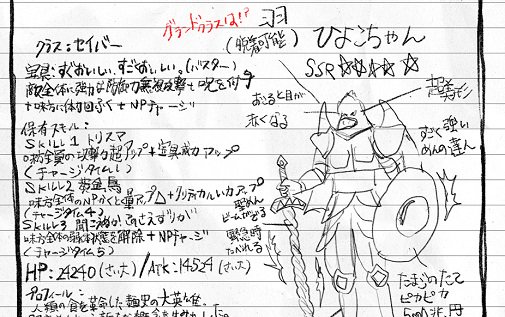 グランドクラスは!?
羽
(脱着可能)
ひよこちゃん
SSR ☆☆☆☆☆
クラス:セイバー
宝具:すごおいしい、すごおいしい。(バスター)
敵全体に強力な防御力無視攻撃+呪を付与
+味方に体力回ふく+NPチャージ
保有スキル:
Skill1 トリスマ
味方全員の攻撃力超アップ+宝具威力アップ
(チャージタイム)
Skill2 黄金鳥
味方全体のNPかくとく量アップ+クリティカルい力アップ
(チャージタイム4)
Skill3
味方全体の弱体状態を解除+NPチャージ
(チャージタイム5)
HP:24240(さい大)/ATK:14524(さい大)
プロフィール:
人類の食を革命した麺史の大英雄、
おこると目が
赤くなる
超美形
すごく強い
めんの達人
聖めん
ビームが出る
緊急時
たべれる
たまごのたて
ピカピカ
5000兆円